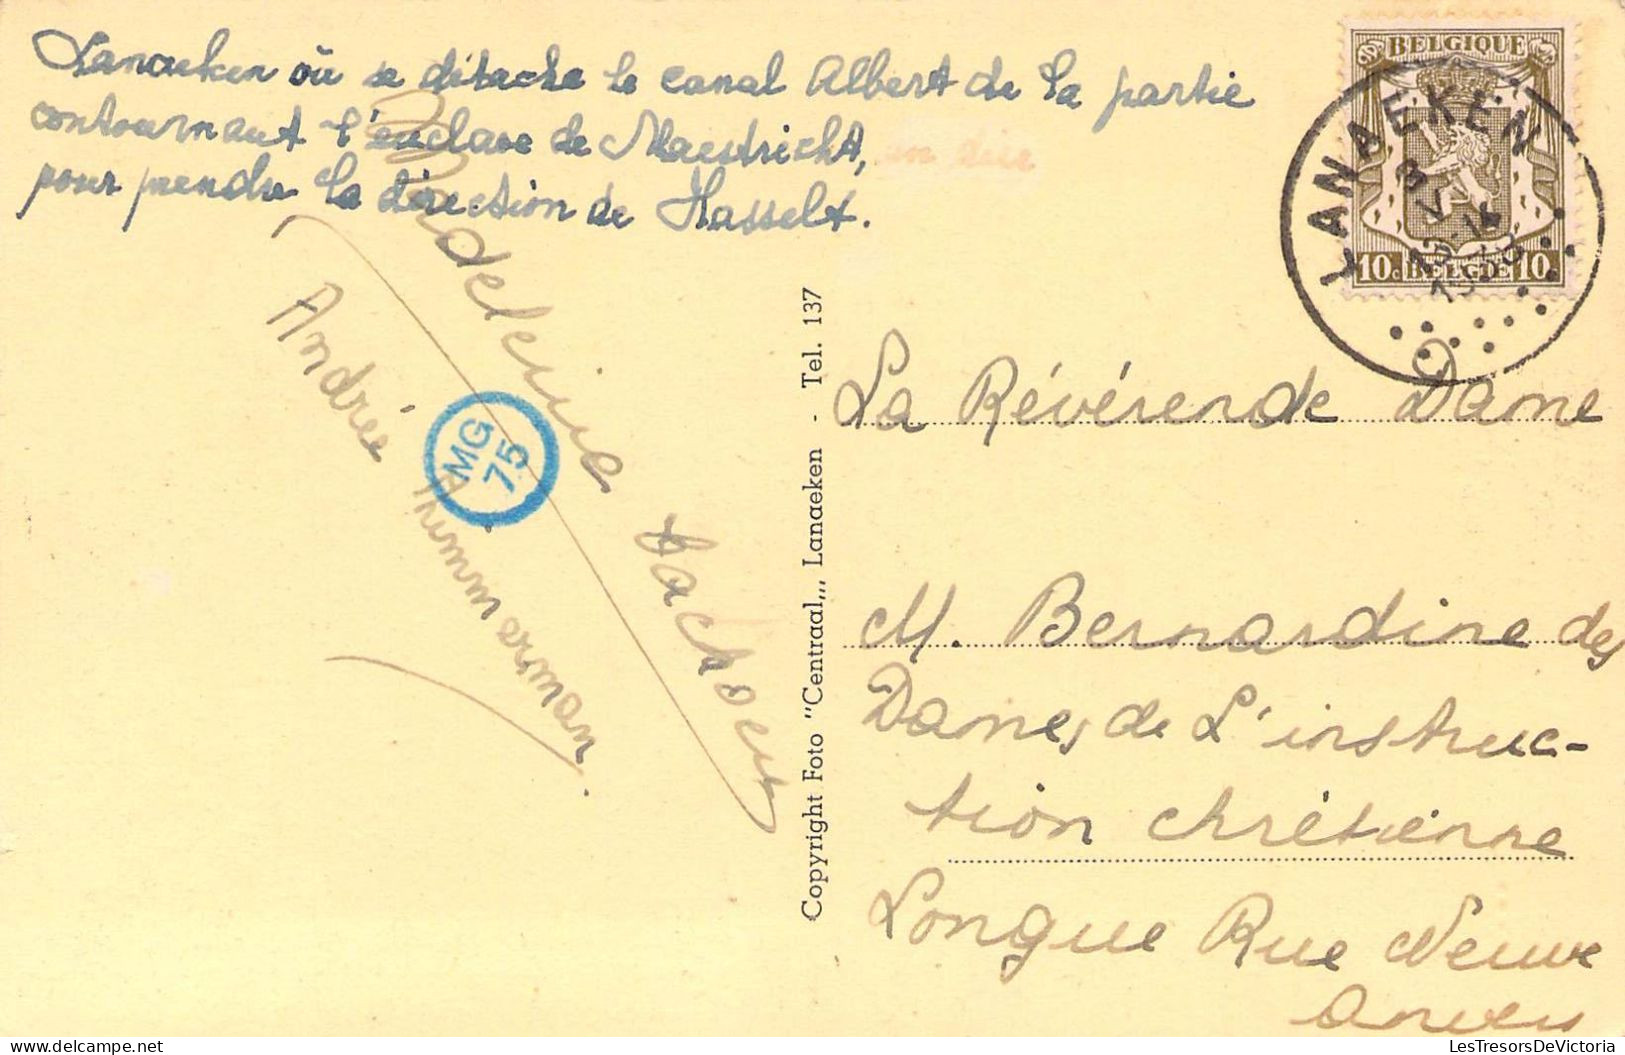 Lanaeken où se détache le canal Albert de la partie
contournant l'enclave de Maestricht,
pour prendre la direction de Hasselt.
Madeleine
Andrée Themmerman.
MG
75
Copyright Foto "Centraal,,, Lanaeken - Tel. 137
BELGIQUE
10c BELGIE 10
LANAEKEN
La Révérende Dame
M. Bernardine des
Dames de L'instruc-
tion chrétienne
Longue Rue Neuve
Anvers
LesTresorsDeVictoria
LesTresorsDeVictoria - delcampe.net